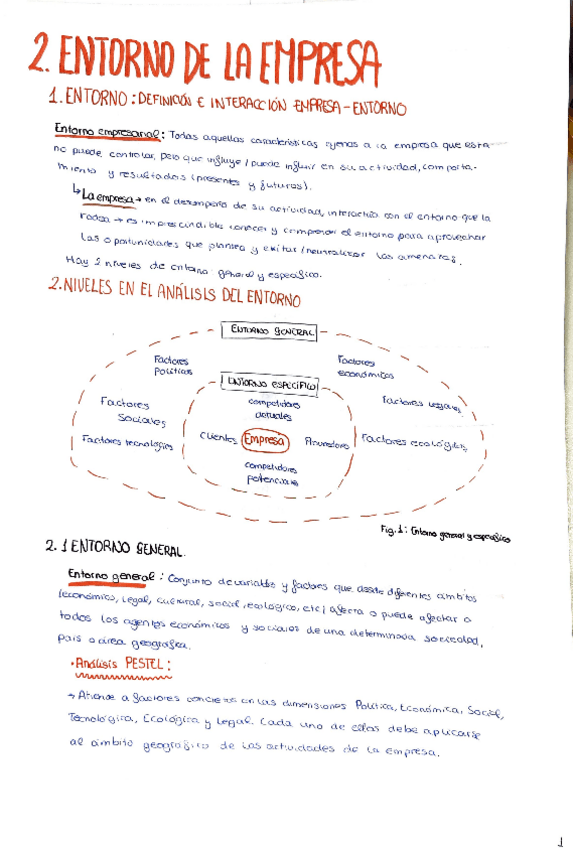 2. ENTORNO DE LA EMPRESA
1. ENTORNO: DEFINICIÓN E INTERACCIÓN EMPRESA-ENTORNO
Entorno empresarial: Todas aquellas características ajenas a la empresa que esta
no puede controlar, pero que influye/puede influir en su actividad, comporta-
miento y resultados (presentes y futuros).
↳ La empresa → en el desempeño de su actividad, interactúa con el entorno que la
rodea → es imprescindible conocer y comprender el entorno para aprovechar
las oportunidades que plantea y evitar/neutralizar las amenazas.
Hay 2 niveles de entorno: general y específico.
2. NIVELES EN EL ANÁLISIS DEL ENTORNO
ENTORNO GENERAL
Factores políticos
Factores económicos
ENTORNO ESPECÍFICO
Factores sociales
competidores actuales
Factores legales
Factores tecnológicos
Clientes
Empresa
Proveedores
Factores ecológicos
competidores potenciales
Fig. 1: Entorno general y específico
2. 1 ENTORNO GENERAL.
Entorno general: Conjunto de variables y factores que, desde diferentes ámbitos
(económico, legal, cultural, social, ecológico, etc) afecta o puede afectar a
todos los agentes económicos y sociales de una determinada sociedad,
país o área geográfica.
• Análisis PESTEL:
→ Atiende a factores concretos en las dimensiones Política, Económica, Social,
Tecnológica, Ecológica y Legal. Cada uno de ellas debe aplicarse
al ámbito geográfico de las actividades de la empresa.
1